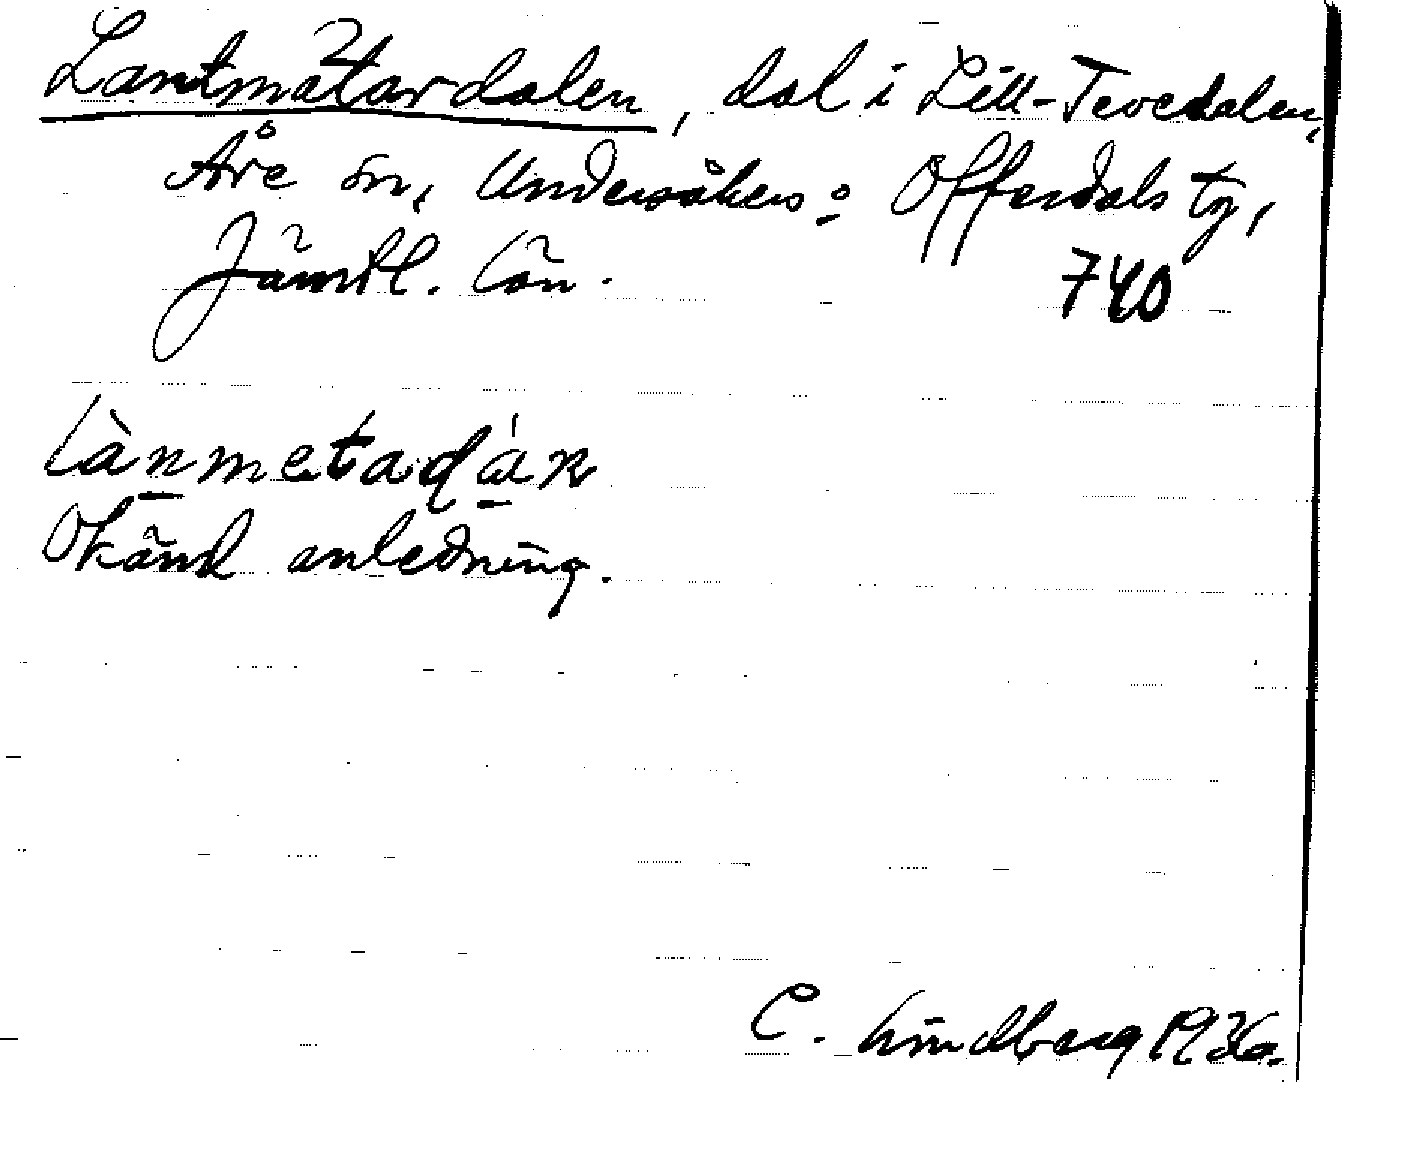 Lantmätardalen, dal i Lill-Tevedalen,
Åre sn, Undersåkers o Offerdals tg,
Jämtl. län.
740
lànmetadán
Okänd anledning.
C. Lindberg 1936.